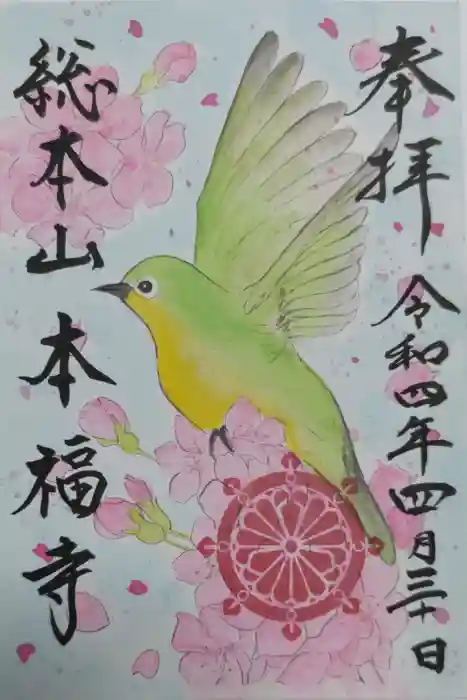 奉拝
令和四年四月三十日
総本山本福寺